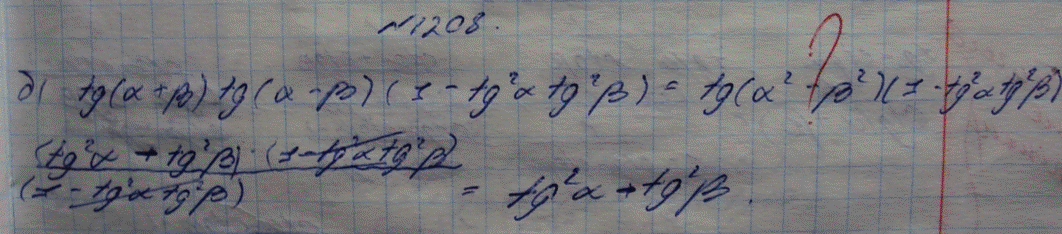 №1208.
д) tg(α+β) tg(α-β) (1-tg²α tg²β) = tg(α²-β²)(1-tg²α tg²β)
?
(tg²α - tg²β) · (1-tg²α tg²β)
(1-tg²α tg²β) = tg²α - tg²β.